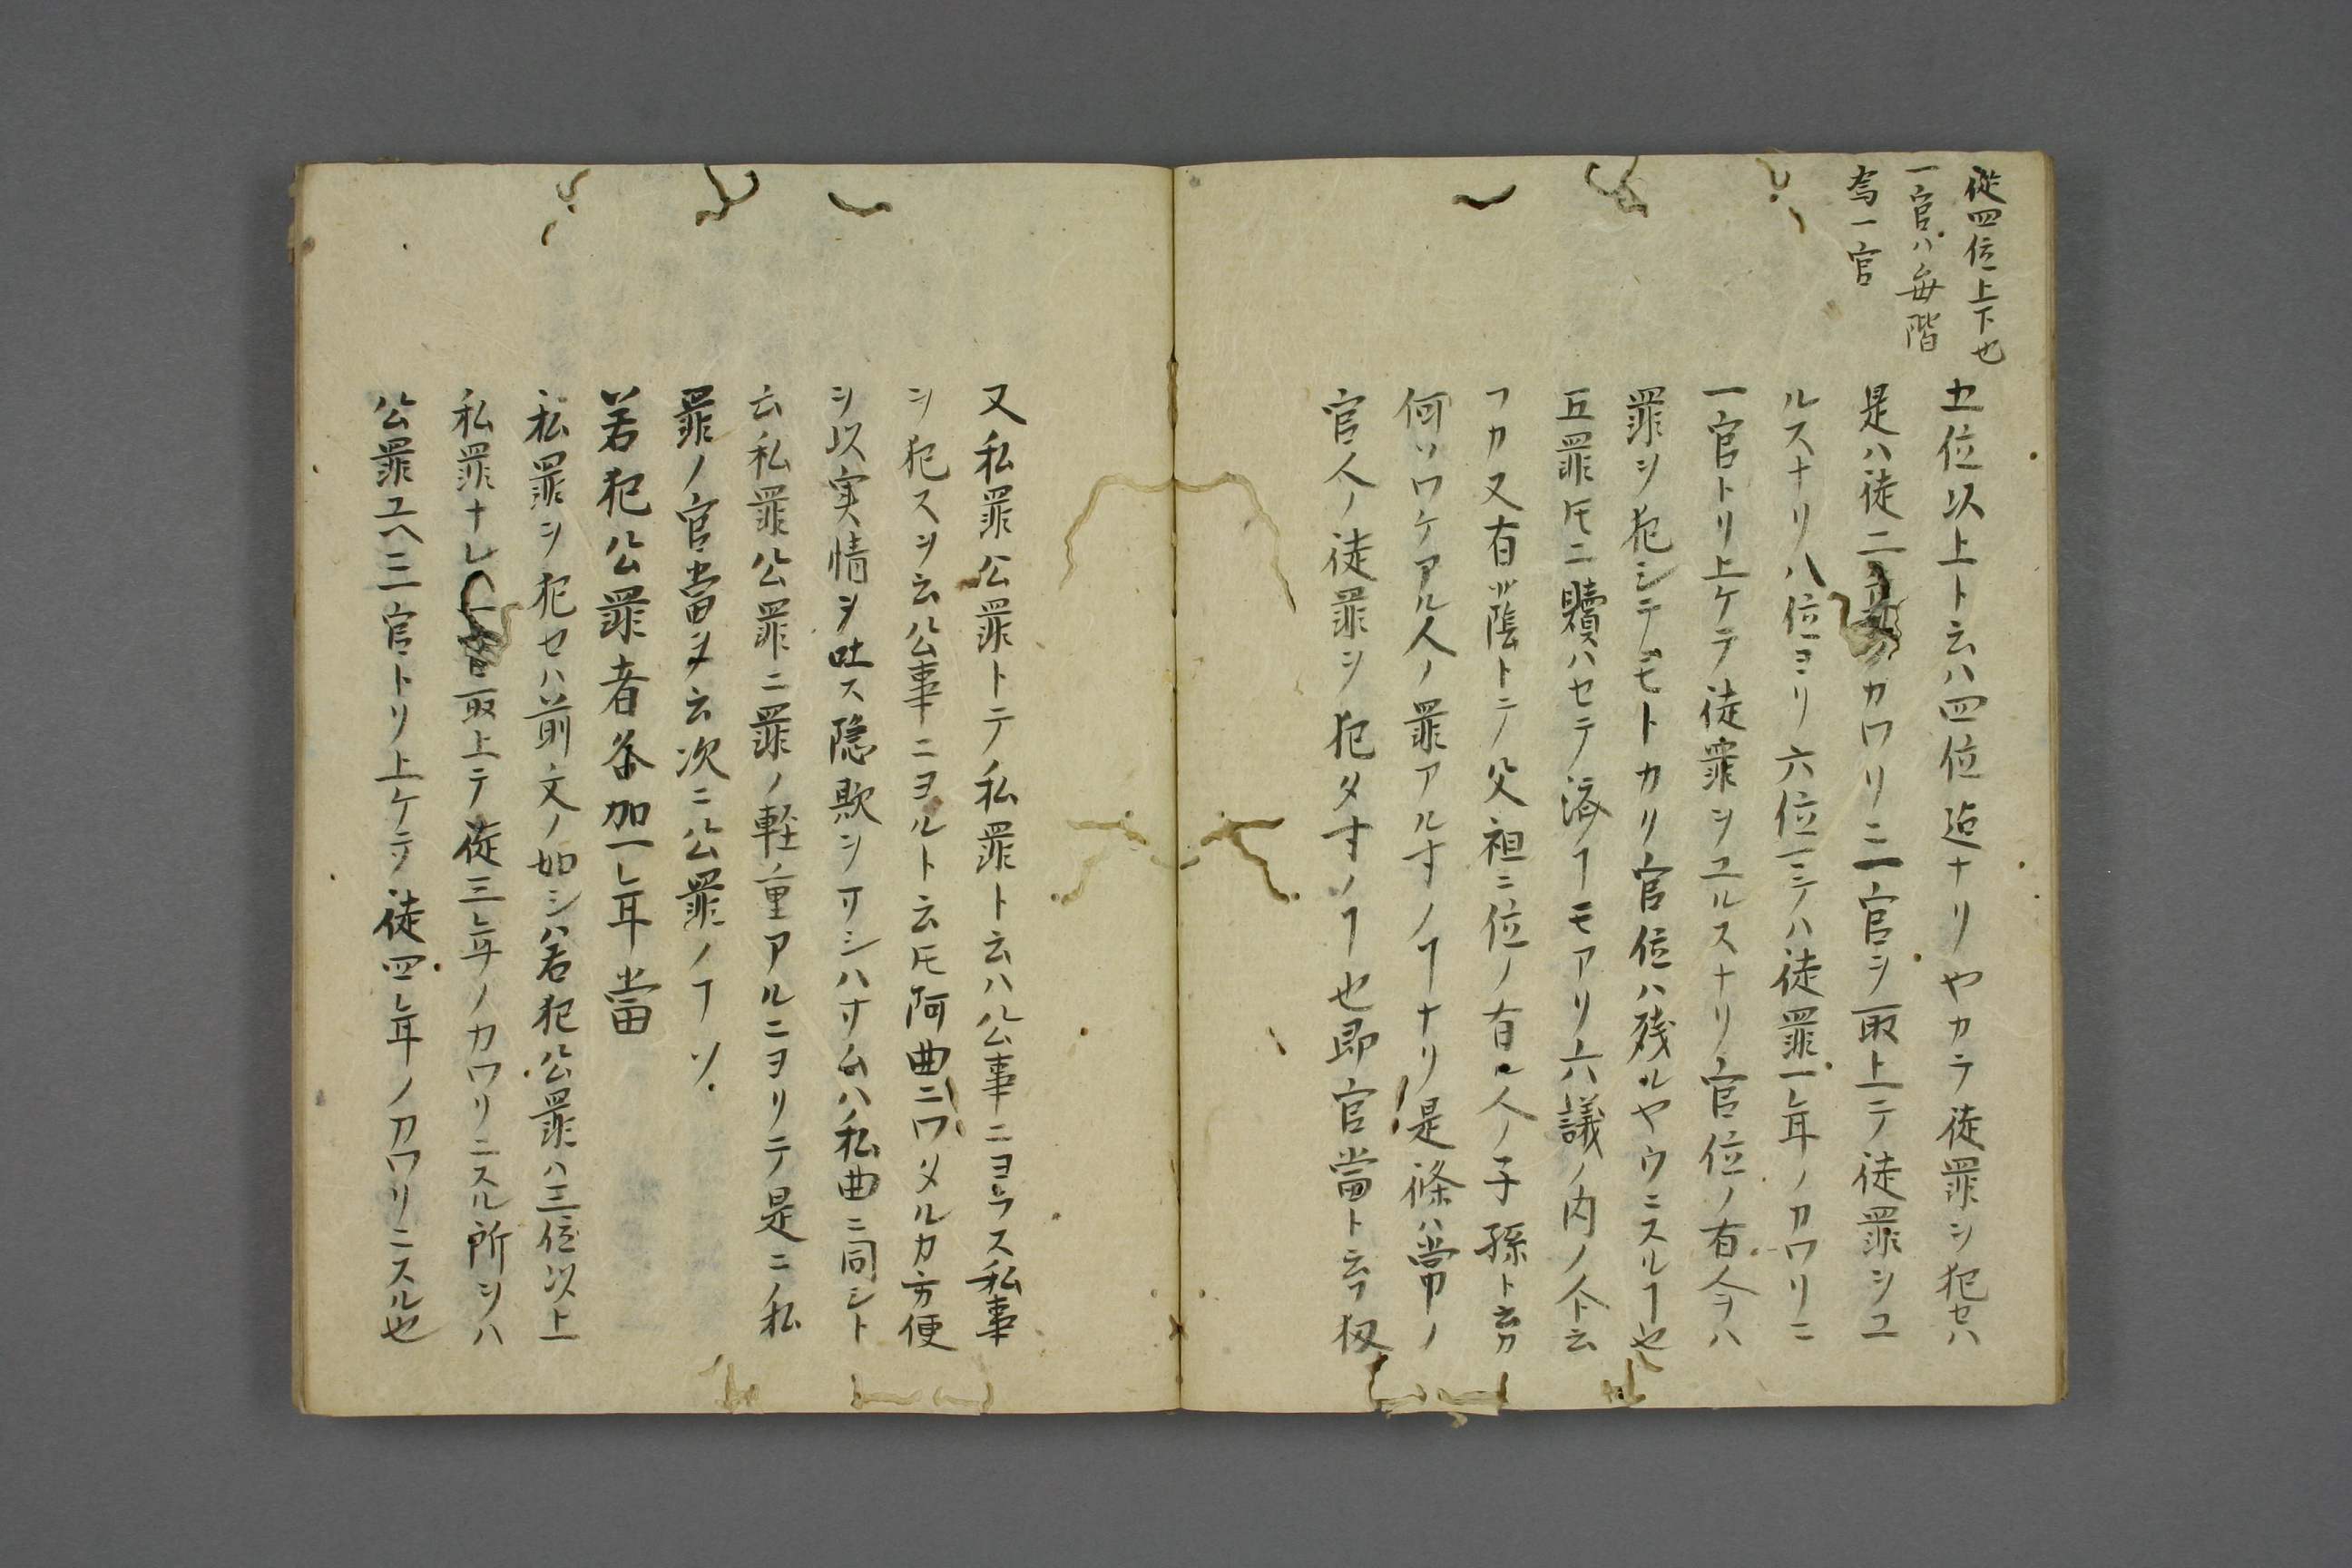 從四位上下也
一官ハ毎階
為一官
五位以上ト云ハ四位迠ナリヤカラ徒罪ヲ犯セハ
是ハ徒二年ノカワリニ一官ヲ取上テ徒罪ヲユ
ルスナリ八位ヨリ六位ニテハ徒罪一年ノカワリニ
一官トリ上ケテ徒罪ヲユルスナリ官位ノ有人ヲハ
罪ヲ犯シテモトカリ官位ハ残ルヤウニスルヿ也
五罪𪜈ニ贖ハセテ済ヿモアリ六議ノ内ノ人ト云
ヿカ又有蔭トテ父祖ニ位ノ有ル人ノ子孫ト云カ
何ソワケアル人ノ罪アルオノヿナリ是條ハ常ノ
官人ノ徒罪ヲ犯タオノヿ也即官當ト云フ扨
又私罪公罪トテ私罪ト云ハ公事ニヨラス私事
ヲ犯スヲ云公事ニヨルト云𪜈阿曲ニワタルカ方便
ヲ以実情ヲ吐ス隠欺ヲナシハオムハ私曲ニ同シト
云私罪公罪ニ罪ノ軽重アルニヨリテ是ニ私
罪ノ官當ヲ云次ニ公罪ノヿソ
若犯公罪者各加一年當
私罪ヲ犯セハ前文ノ如シハ若犯公罪ハ三位以上
私罪ナレ一官取上テ徒三年ノカワリニスル所ヲハ
公罪ユヘ三官トリ上ケテ徒四年ノカワリニスル也